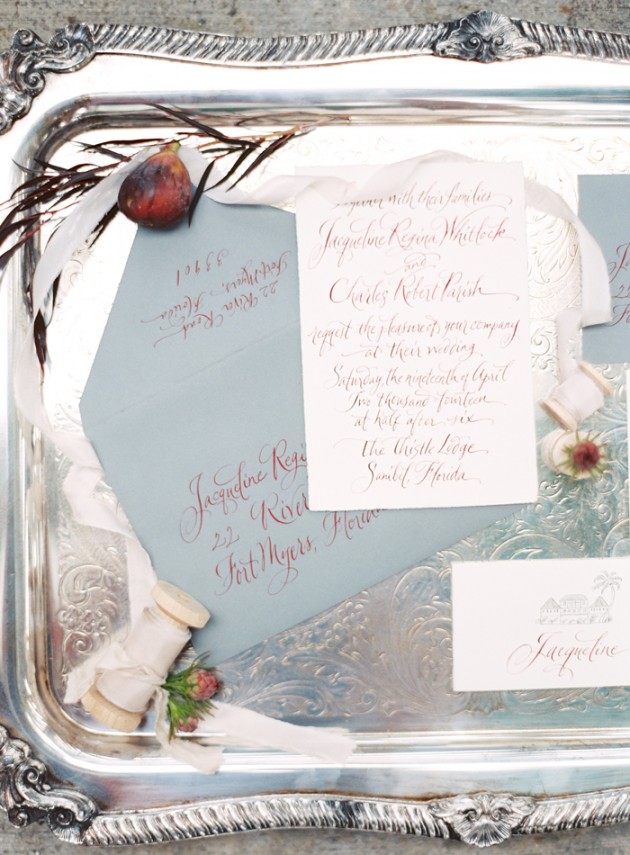 together with their families
Jacqueline Regina Whitlock
and
Charles Robert Parish
request the pleasure of your company
at their wedding
Saturday, the nineteenth of April
Two thousand fourteen
at half after six
The Thistle Lodge
Sanibel, Florida
22 River Road
Fort Myers,
Florida
33901
Jacqueline Regi
22 River
Fort Myers, Florida
Jacqueline